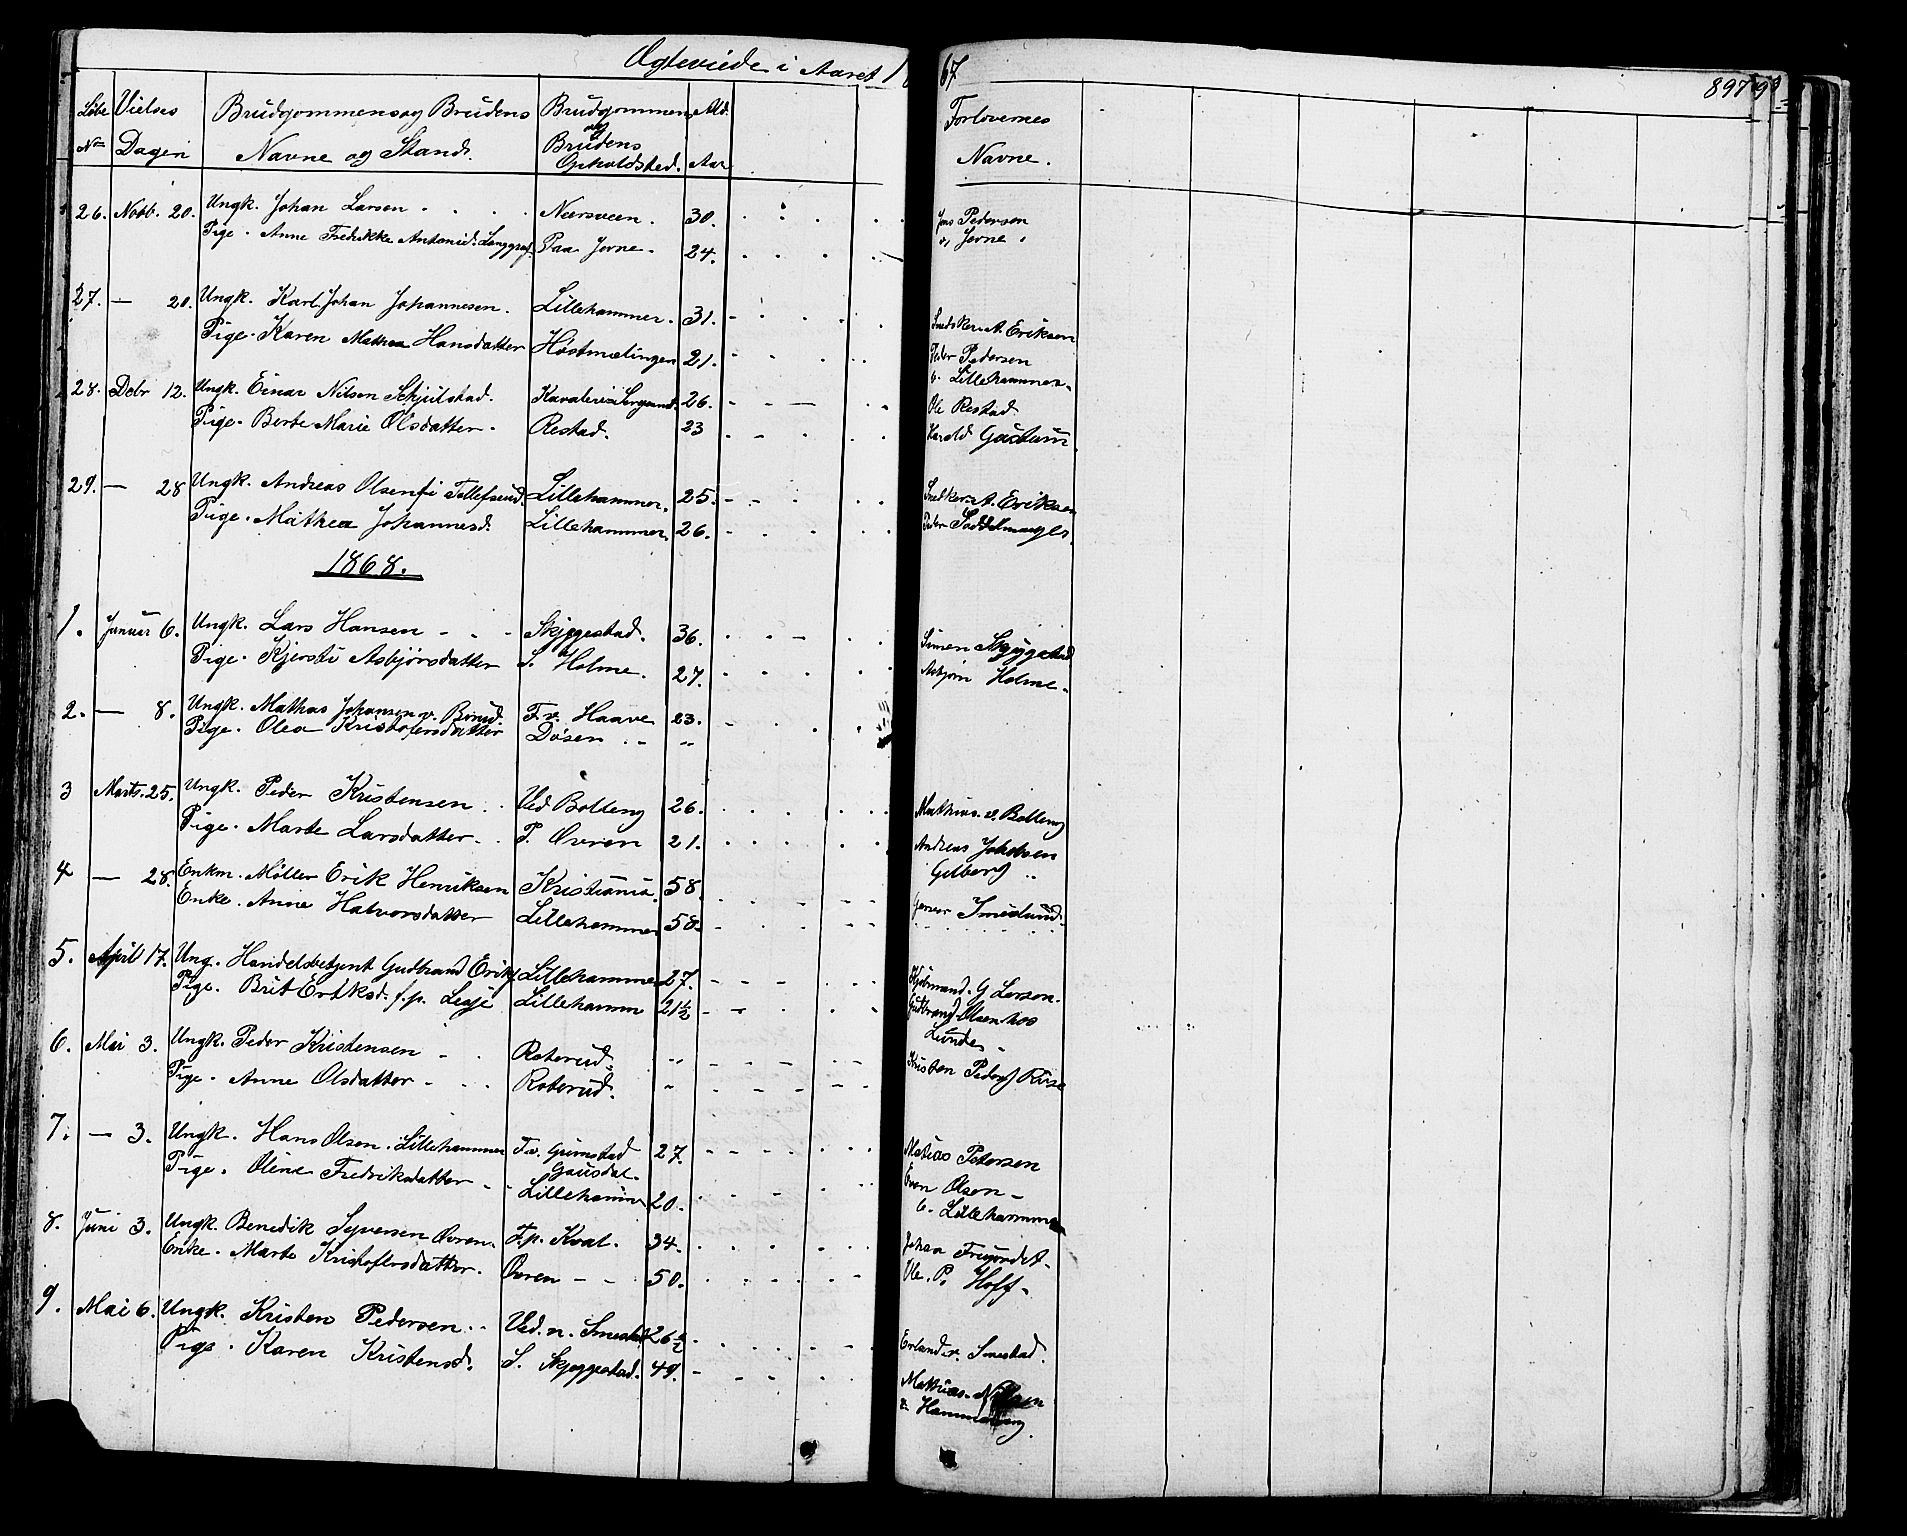 Ægteviede i Aaret 1867
897
Løbe No
Vielses Dagen
Brudgommens og Brudens Navne og Stand.
Brudgommens og Brudens Opholdsted.
Ald. Aar
Forlovernes Navne.
26. Novb. 20. Ungk. Johan Larsen Nersveen. 30. Jens Pedersen
Pige. Anne Fredrikke Antonied. Paa Jorne. 24. v. Jorne.
27. — 20. Ungk. Karl Johan Johannesen. Lillehammer. 31. Snedker A. Eriksen
Pige. Karen Mathea Hansdatter Høstmælingen 21. Peder Pedersen
Lillehammer.
28. Debr 12. Ungk. Einar Nilsen Skjelstad. 26. Ole Restad.
Pige. Berte Marie Olsdatter. Restad. 23 Harald
29. — 28 Ungk. Andreas Olsen fr Tollefsrud. Lillehammer. 25. Snedker A. Eriksen
Pige. Mathea Johannesd. Lillehammer. 26. Peder Saddelmager.
1868.
1. Januar 6. Ungk. Lars Hansen Skjeggestad. 36. Simen Skjeggestad
Pige. Kjersti Asbjørsdatter S. Holme. 27. Asbjørn Holme.
2. — 8. Ungk. Mathias Johansen v. F. v. Haave 23.
Pige. Olea Kristofersdatter Døsen „
3 Marts. 25. Ungk. Peder Kristensen Ved Botteng 26. Mathias v. Botteng
Pige. Marte Larsdatter P. Øvren 21. Andreas Jakobsen
Gilberg
4 — 28. Enkm. Møller Erik Henriksen Kristiania. 58.
Enke. Anne Halvorsdatter Lillehammer 58.
5. April 17. Ung. Handelsbetjent Gudbrand Eriks. Lillehammer 27. Kjøbmand. G Larsen.
Pige. Brit Eriksd. f. p. Lesje Lillehamm 21½ Gudbrand Olsen hos
Lunde
6. Mai 3. Ungk. Peder Kristensen Roterud. „ Kristen Peders
Pige. Anne Olsdatter Roterud. „
7. — 3. Ungk. Hans Olsen. Lillehammer F. v. Grimstad Gausdal. 27. Matias Petersen
Pige. Oline Fredriksdatter Lillehammer 20. Even Olsen
Lillehammer
8. Juni 3. Ungk. Benedik Syversen Øvren. F. p. Kval. 34. Johan
Enke. Marte Kristofersdatter. Øvren 50. Ole. P. Hoff
9. Mai 6. Ungk. Kristen Pedersen. Ved. n. Smestad 26½ Erland v. Smestad.
Pige. Karen Kristensd. S. Skjeggestad. 49. Mathias Nilsen
v. Hammeberg.